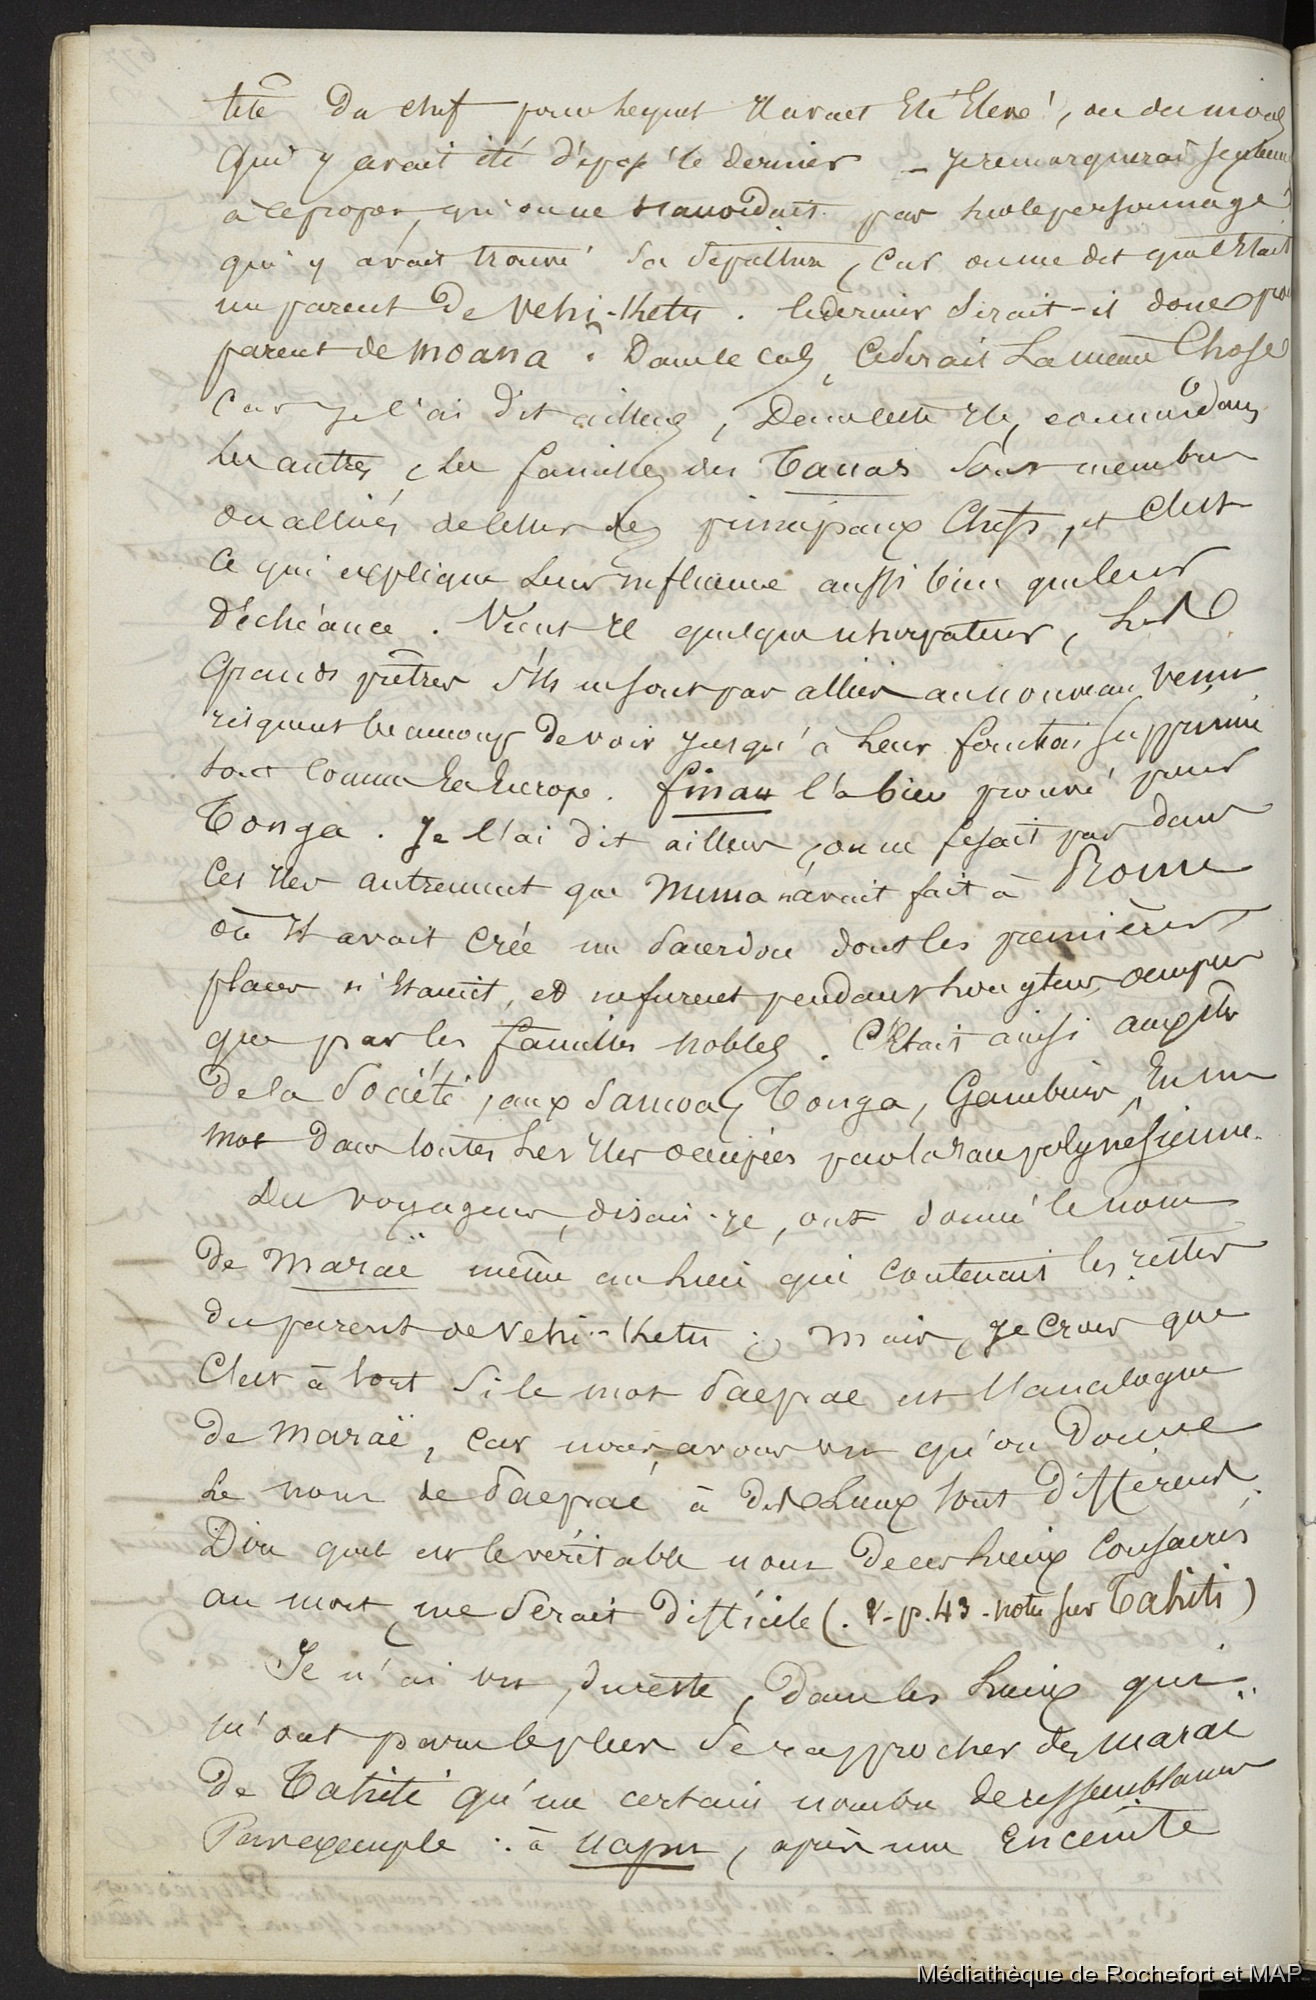 tête du chef pour lequel il avait été élevé, ou du moins
qui y avait été déposé le dernier _ Je remarquerai seulement
à ce propos, qu'on ne s'accordait pas sur le personnage
qui y avait trouvé sa sépulture, car on me dit qu'il était
un parent de Vehi-Ketu. Ce dernier serait-il donc
parent de Moana? Dans le cas, ce serait la même chose
car je l'ai dit ailleurs, dans cette île, comme dans
les autres, les familles des Tauas sont membres
ou alliées de celles des principaux chefs, et c'est
ce qui explique leur influence aussi bien que leur
déchéance. Vient il quelque usurpateur, les
Grands prêtres s'ils ne sont pas alliés au nouveau venu
risquent beaucoup de voir jusqu'à leur fonction supprimée
tout comme En Europe. Finau l'a bien prouvé pour
Tonga. Je l'ai dit ailleurs, on ne fesait pas dans
ces îles autrement que Numa n'avait fait à Rome
où il avait créé un sacerdoce dont les premières
places n'étaient, et ne furent pendant longtems, occupées
que par les familles nobles. C'était ainsi aux îles
de la Société, aux Samoa, Tonga, Gambier, En un
mot dans toutes les îles occupées par la race polynésienne.
Des voyageurs, disais-je, ont donné le nom
de Maraë même au lieu qui contenait les restes
du parent de Vehi-Ketu; mais, je crois que
c'est à tort si le mot Paepae est l'analogue
de Maraë, car nous avons vu qu'on donne
le nom de Paepae à des lieux tout différens.
Dire quel est le véritable nom de ces lieux consacrés
au mort, me serait difficile (. V- p. 43 - note sur Tahiti)
Je n'ai vu, du reste, dans les lieux qui
m'ont paru le plus se rapprocher des maraë
de Tahiti qu'un certain nombre de ressemblances
Par exemple: à Uapu, après une Enceinte
Médiathèque de Rochefort et MAP